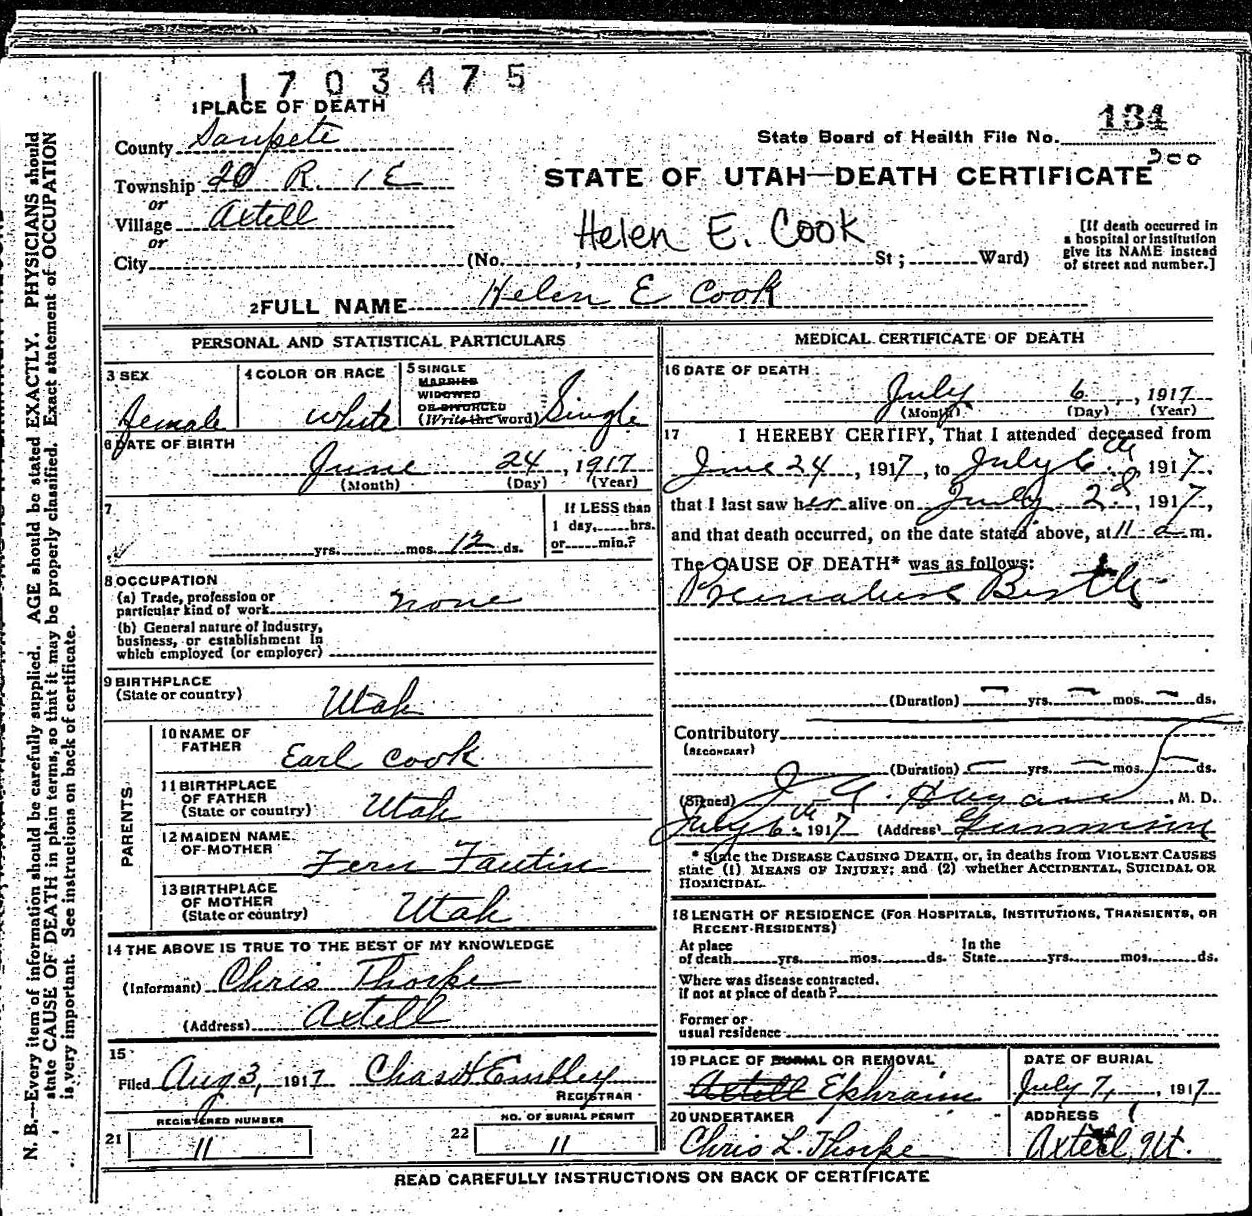 1703475
1 PLACE OF DEATH
County Sanpete
State Board of Health File No. 134
Township 20 R. 1E
900
or
STATE OF UTAH—DEATH CERTIFICATE
Village Axtell
Helen E. Cook
or
City (No. , St ; Ward)
[If death occurred in
a hospital or institution
give its NAME instead
of street and number.]
2 FULL NAME Helen E Cook
PERSONAL AND STATISTICAL PARTICULARS
3 SEX
Female
4 COLOR OR RACE
white
5 SINGLE
MARRIED
WIDOWED
OR DIVORCED
(Write the word) Single
6 DATE OF BIRTH
June 24, 1917
(Month) (Day) (Year)
7
yrs. mos. 12 ds.
If LESS than
1 day, hrs.
or min.?
8 OCCUPATION
(a) Trade, profession or
particular kind of work none
(b) General nature of industry,
business, or establishment in
which employed (or employer)
9 BIRTHPLACE
(State or country) Utah
PARENTS
10 NAME OF
FATHER Earl Cook
11 BIRTHPLACE
OF FATHER
(State or country) Utah
12 MAIDEN NAME
OF MOTHER Fern Fautin
13 BIRTHPLACE
OF MOTHER
(State or country) Utah
14 THE ABOVE IS TRUE TO THE BEST OF MY KNOWLEDGE
(Informant) Chris Thorpe
(Address) Axtell
15
Filed Aug 3, 1917 Chas H Embley
REGISTRAR
REGISTERED NUMBER
21 11
NO. OF BURIAL PERMIT
22 11
MEDICAL CERTIFICATE OF DEATH
16 DATE OF DEATH
July 6, 1917
(Month) (Day) (Year)
17 I HEREBY CERTIFY, That I attended deceased from
June 24, 1917, to July 6th, 1917,
that I last saw her alive on July 2d, 1917,
and that death occurred, on the date stated above, at 11 a m.
The CAUSE OF DEATH* was as follows:
Premature Birth
(Duration) — yrs. — mos. — ds.
Contributory
(SECONDARY)
(Duration) — yrs. — mos. — ds.
(Signed) , M. D.
July 6th 1917 (Address) Gunnison
* State the DISEASE CAUSING DEATH, or, in deaths from VIOLENT CAUSES
state (1) MEANS OF INJURY; and (2) whether ACCIDENTAL, SUICIDAL OR
HOMICIDAL.
18 LENGTH OF RESIDENCE (FOR HOSPITALS, INSTITUTIONS, TRANSIENTS, OR
RECENT RESIDENTS)
At place
of death yrs. mos. ds.
In the
State yrs. mos. ds.
Where was disease contracted,
if not at place of death?
Former or
usual residence
19 PLACE OF BURIAL OR REMOVAL
Axtell Ephraim
DATE OF BURIAL
July 7, 1917
20 UNDERTAKER
Chris L. Thorpe
ADDRESS
Axtell, Ut.
READ CAREFULLY INSTRUCTIONS ON BACK OF CERTIFICATE
N. B.—Every item of information should be carefully supplied. AGE should be stated EXACTLY. PHYSICIANS should
state CAUSE OF DEATH in plain terms, so that it may be properly classified. Exact statement of OCCUPATION
is very important. See instructions on back of certificate.